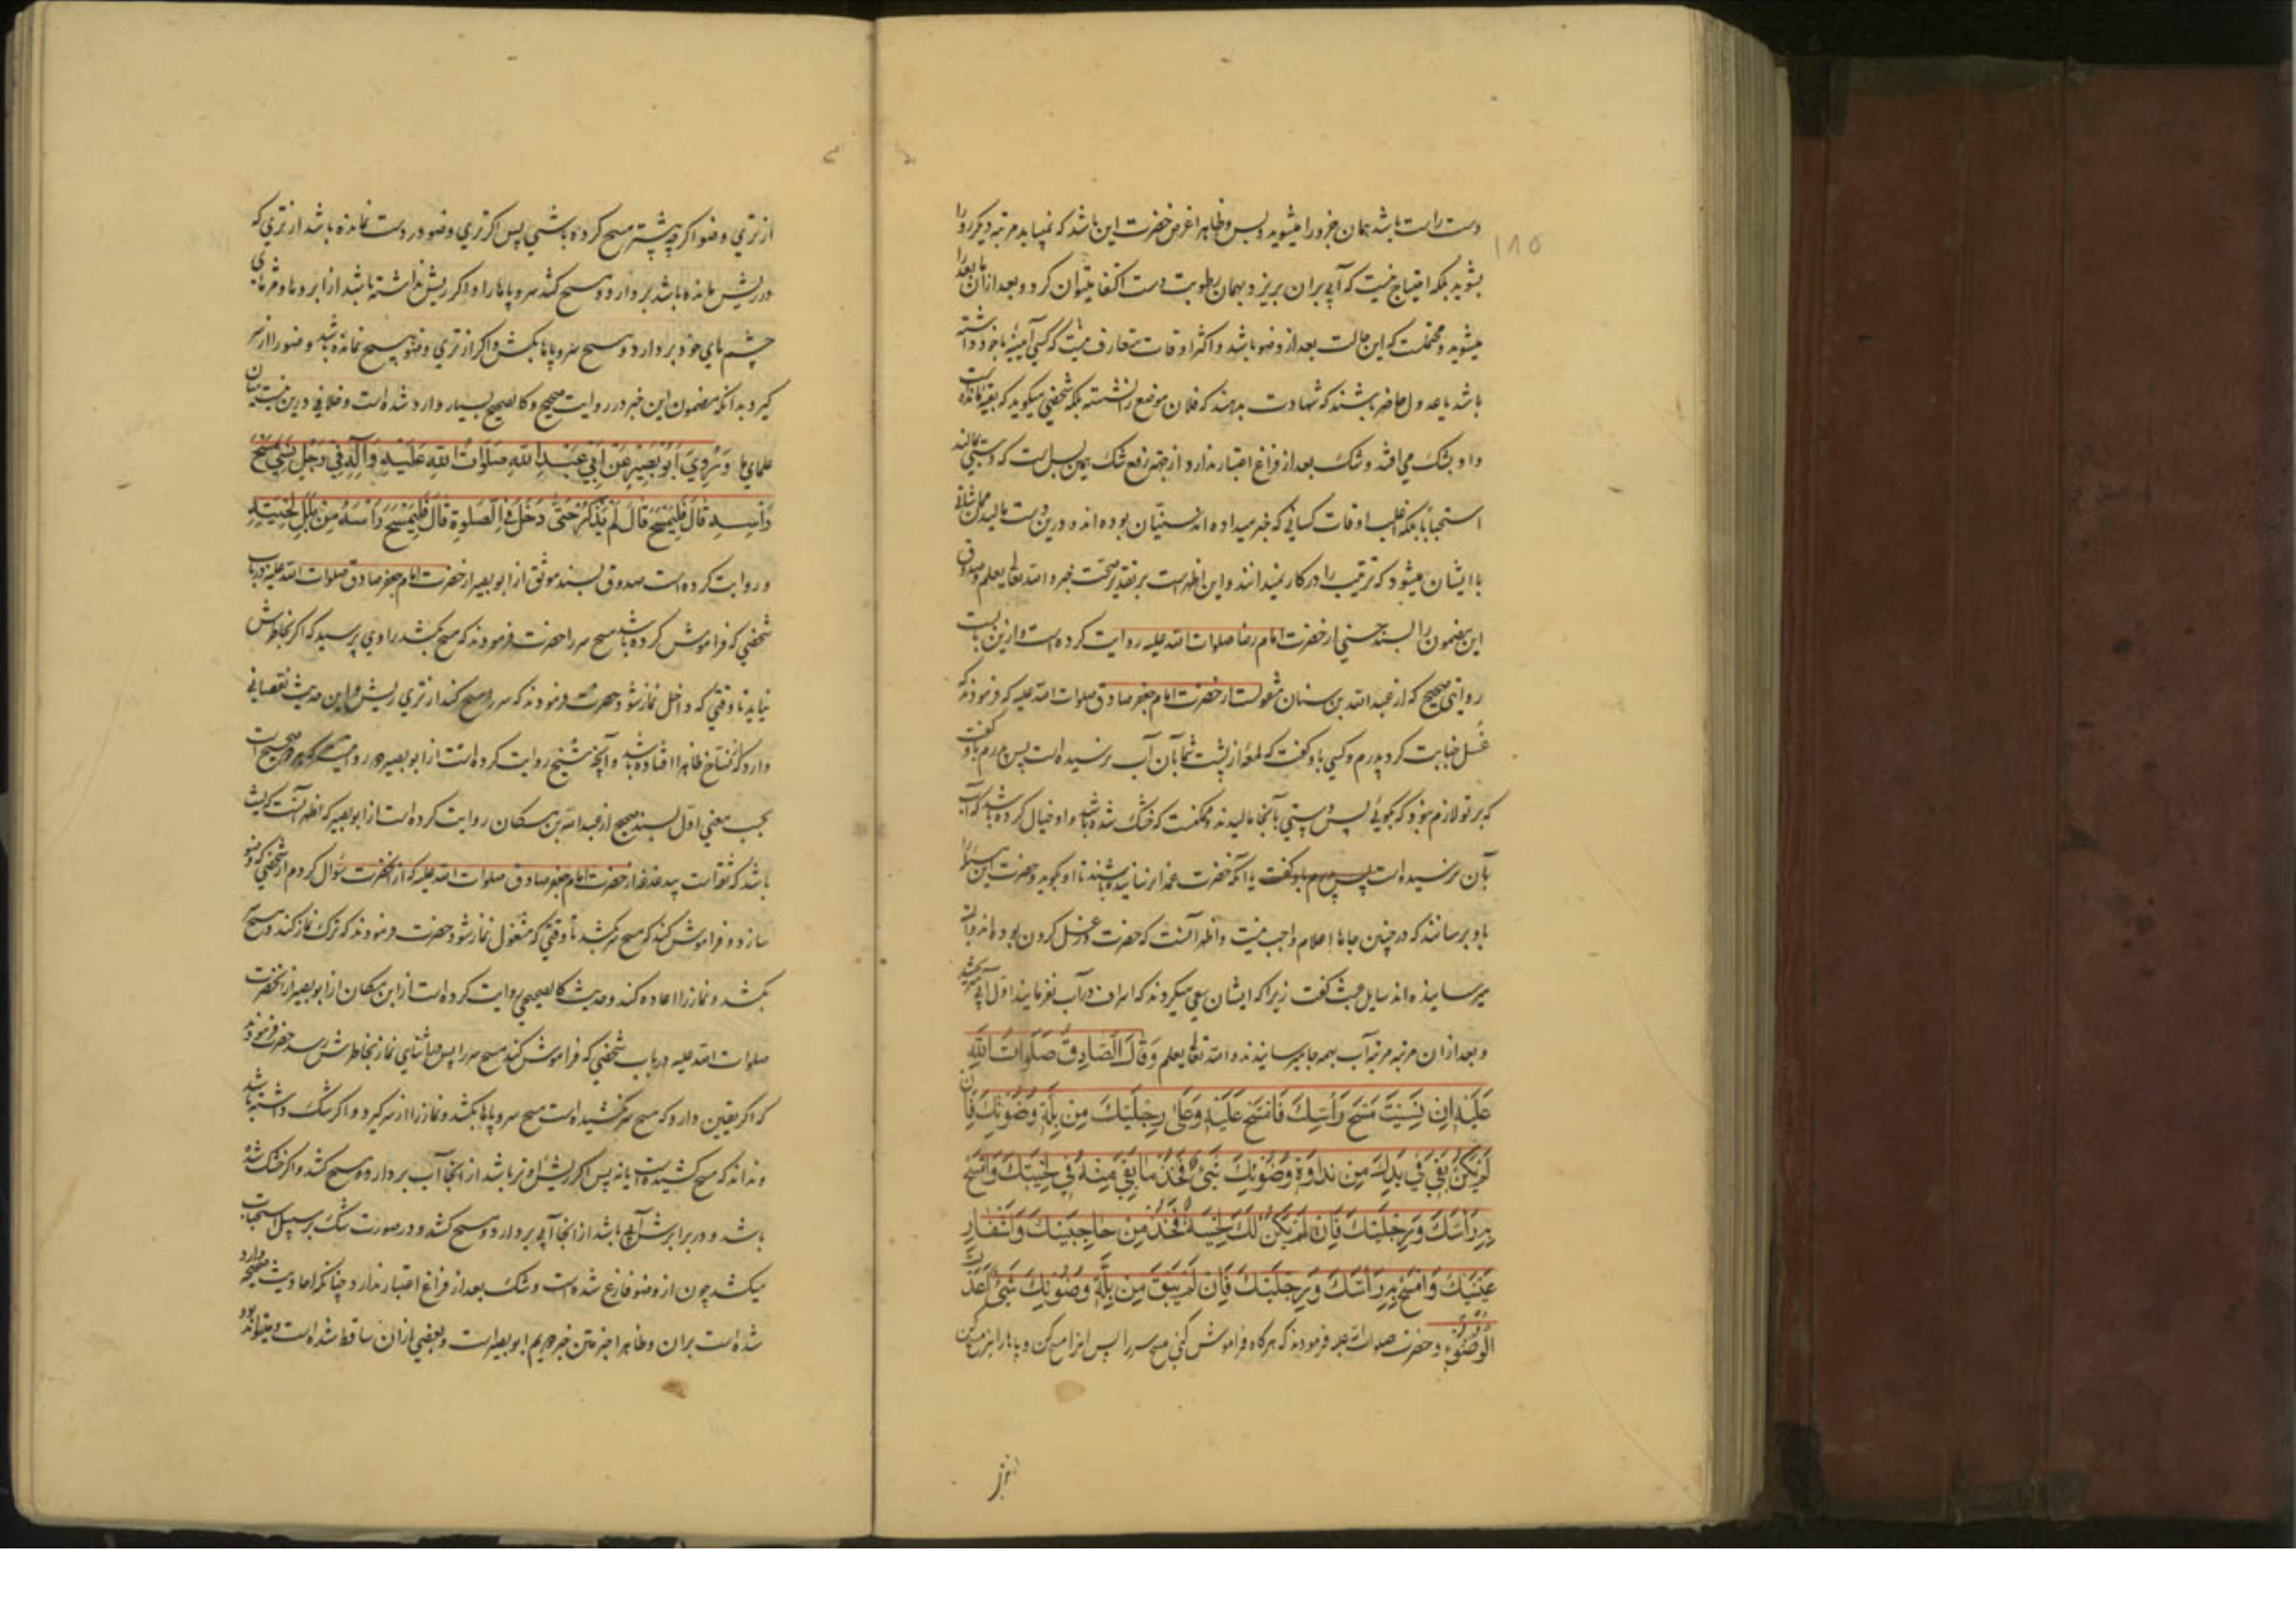 ۱۸۵
دست راست باشد همان جزو را میشوید و بس و ظاهرا غرض حضرت این باشد که نمیباید مرتبه دیگر رو را
بشوید بلکه احتیاج نیست که آبی بران بریزد و بهمان رطوبت دست اکتفا میتوان کرد و بعد ازان ما بعد را
میشوید و محتملست که این حالت بعد از وضو باشد و اکثر اوقات متعارف نیست که کسی آیینه با خود داشته
باشد یا عدول حاضر باشند که شهادت بدهند که فلان موضع را نشسته بلکه شخصی میکوید که بقیه مانده است
و او بشک می افتد و شک بعد از فراغ اعتبار ندارد و از جهة رفع شک همین بس است که دستی بمالند
استحبابا بلکه اغلب اوقات کسانی که خبر میداده اند سنیان بوده اند و درین دست مالیدن مماشاتی
با ایشان میشود که ترتیب را در کار نمیدانند و این اظهر است بر تقدیر صحت خبر و الله تعالی یعلم و صدوق
این مضمون را بسند حسنی از حضرت امام رضا صلوات الله علیه روایت کرده است و ازین بابست
روایتی صحیح که از عبد الله بن سنان منقولست از حضرت امام جعفر صادق صلوات الله علیه که فرمودند که
غسل جنابت کرد پدرم و کسی باو کفت که لمعه از پشت شما بآن آب نرسیده است پس پدرم باو کفت
که بر تو لازم نبود که بکویی پس دستی بآنجا مالیدند و ممکنست که خشک شده باشد و او خیال کرده باشد که آب
بآن نرسیده است پس پدرم باو کفت یا آنکه حضرت عمدا نرسانیده باشند تا او بکوید و حضرت این مسئله را
باو برسانند که در چنین جاها اعلام واجب نیست و اظهر آنست که حضرت در غسل کردن بوده اند و آب
میرسانیده اند سایل عبث کفت زیرا که ایشان سعی میکردند که اسراف در آب نفرمایند اول آبی میریختند
و بعد ازان مرتبه مرتبه آب بهمه جا میرسانیدند و الله تعالی یعلم وَقَالَ الصَّادِقُ صَلَوَاتُ اللهِ
عَلَيْهِ اِنْ نَسِيْتَ مَسْحَ رَأْسِكَ فَامْسَحْ عَلَيْهِ وَعَلٰى رِجْلَيْكَ مِنْ بِلَّةِ وُضُوئِكَ فَاِنْ
لَمْ يَكُنْ بَقِيَ فِي يَدِكَ مِنْ نَدَاوَةِ وُضُوئِكَ شَيْءٌ فَخُذْ مَا بَقِيَ مِنْهُ فِي لِحْيَتِكَ وَامْسَحْ
بِهِ رَأْسَكَ وَرِجْلَيْكَ فَاِنْ لَمْ يَكُنْ لَكَ لِحْيَةٌ فَخُذْ مِنْ حَاجِبَيْكَ وَاَشْفَارِ
عَيْنَيْكَ وَامْسَحْ بِهِ رَأْسَكَ وَرِجْلَيْكَ فَاِنْ لَمْ يَبْقَ مِنْ بِلَّةِ وُضُوئِكَ شَيْءٌ اَعَدْتَ
الْوُضُوْءَ و حضرت صلوات الله علیه فرمودند که هر کاه فراموش کنی مسح سر را پس انرا مسح کن و پاها را نیز مسح کن
از تری
از تری وضو اکرچه پیشتر مسح کرده باشی پس اکر تری وضو در دست نمانده باشد از تری که
در ریش مانده باشد بردارد و مسح کشد سر و پاها را و اکر ریش نداشته باشد از ابروها و مژهای
چشمهای خود بردارد و مسح سر و پاها بکشد و اکر از تری وضو هیچ نمانده باشد وضو را از سر
کیرد بدانکه مضمون این خبر در روایت صحیح و کالصحیح بسیار وارد شده است و خلافی درین نیست میان
علمای ما وَرُوِيَ اَبُوْبَصِيْرٍ عَنْ اَبِي عَبْدِ اللهِ صَلَوَاتُ اللهِ عَلَيْهِ وَآلِهِ فِي رَجُلٍ نَسِيَ مَسْحَ
رَأْسِهِ قَالَ فَلْيَمْسَحْ قَالَ لَمْ يَذْكُرْ حَتّٰى دَخَلَ فِي الصَّلٰوةِ قَالَ فَلْيَمْسَحْ رَأْسَهُ مِنْ بَلَلِ لِحْيَتِهِ
و روایت کرده است صدوق بسند موثق از ابو بصیر از حضرت امام جعفر صادق صلوات الله علیه در باب
شخصی که فراموش کرده باشد مسح سر را حضرت فرمودند که مسح بکشد راوی پرسید که اکر بخاطرش
نیاید تا وقتی که داخل نماز شود حضرت فرمودند که سر را مسح کند از تری ریش و این حدیث نقصانی
دارد که نساخ ظاهرا افتاده باشد و آنچه شیخ روایت کرده است از ابو بصیر در روایت صحیح است
بحسب معنی اول بسند صحیح از عبد الله بن مسکان روایت کرده است از ابو بصیر که اظهر آنست که لیث
باشد که ثقه است پیدغدغه از حضرت امام جعفر صادق صلوات الله علیه که از انحضرت سؤال کردم از شخصی که وضو
سازد و فراموش کند که مسح سر بکشد تا وقتی که مشغول نماز شود حضرت فرمودند که ترک نماز کند و مسح سر
بکشد و نماز را اعاده کند و حدیث کالصحیحی روایت کرده است از ابن مسکان از ابو بصیر از انحضرت
صلوات الله علیه در باب شخصی که فراموش کند مسح سر را پس در اثنای نماز بخاطرش رسد حضرت فرمودند
که اکر یقین دارد که مسح سر نکشیده است مسح سر و پاها بکشد و نماز را از سر کیرد و اکر شک داشته باشد
و نداند که مسح کشیده است یا نه پس اکر ریش او تر باشد از انجا آب بردارد و مسح کشد و اکر خشک شده
باشد و در برابرش آبی باشد از انجا آبی بردارد و مسح کشد و در صورت شک بر سبیل استحباب
میکشد چون از وضو فارغ شده است و شک بعد از فراغ اعتبار ندارد چنانکه احادیث صحیحه وارد
شده است بران و ظاهرا خبر متن خبر دویم ابو بصیر است و بعضی ازان ساقط شده است و میتواند بود